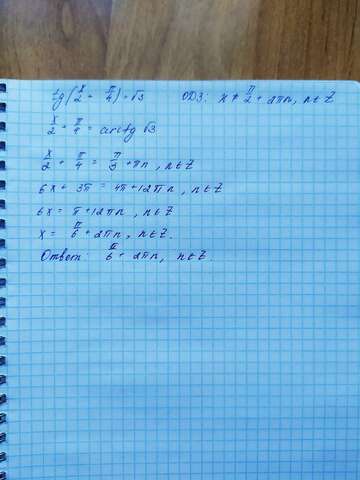 tg(x/2 + π/4) = √3 ОДЗ: x ≠ π/2 + 2πn, n∈Z
x/2 + π/4 = arctg √3
x/2 + π/4 = π/3 + πn, n∈Z
6x + 3π = 4π + 12πn, n∈Z
6x = π + 12πn, n∈Z
x = π/6 + 2πn, n∈Z.
Ответ: π/6 + 2πn, n∈Z.